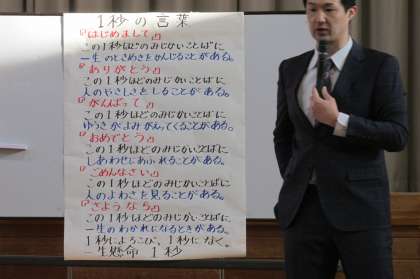 1秒の言葉
「はじめまして」
この1秒ほどのみじかいことばに
一生のときめきをかんじることがある。
「ありがとう」
この1秒ほどのみじかいことばに
人のやさしさをしることがある。
「がんばって」
この1秒ほどのみじかいことばで
ゆうきがよみがえってくることがある。
「おめでとう」
この1秒ほどのみじかいことばで
しあわせにあふれることがある。
「ごめんなさい」
この1秒ほどのみじかいことばに
人のよわさを見ることがある。
「さようなら」
この1秒ほどのみじかいことばに
一生のわかれになるときがある。
1秒によろこび、1秒になく。
一生懸命 1秒